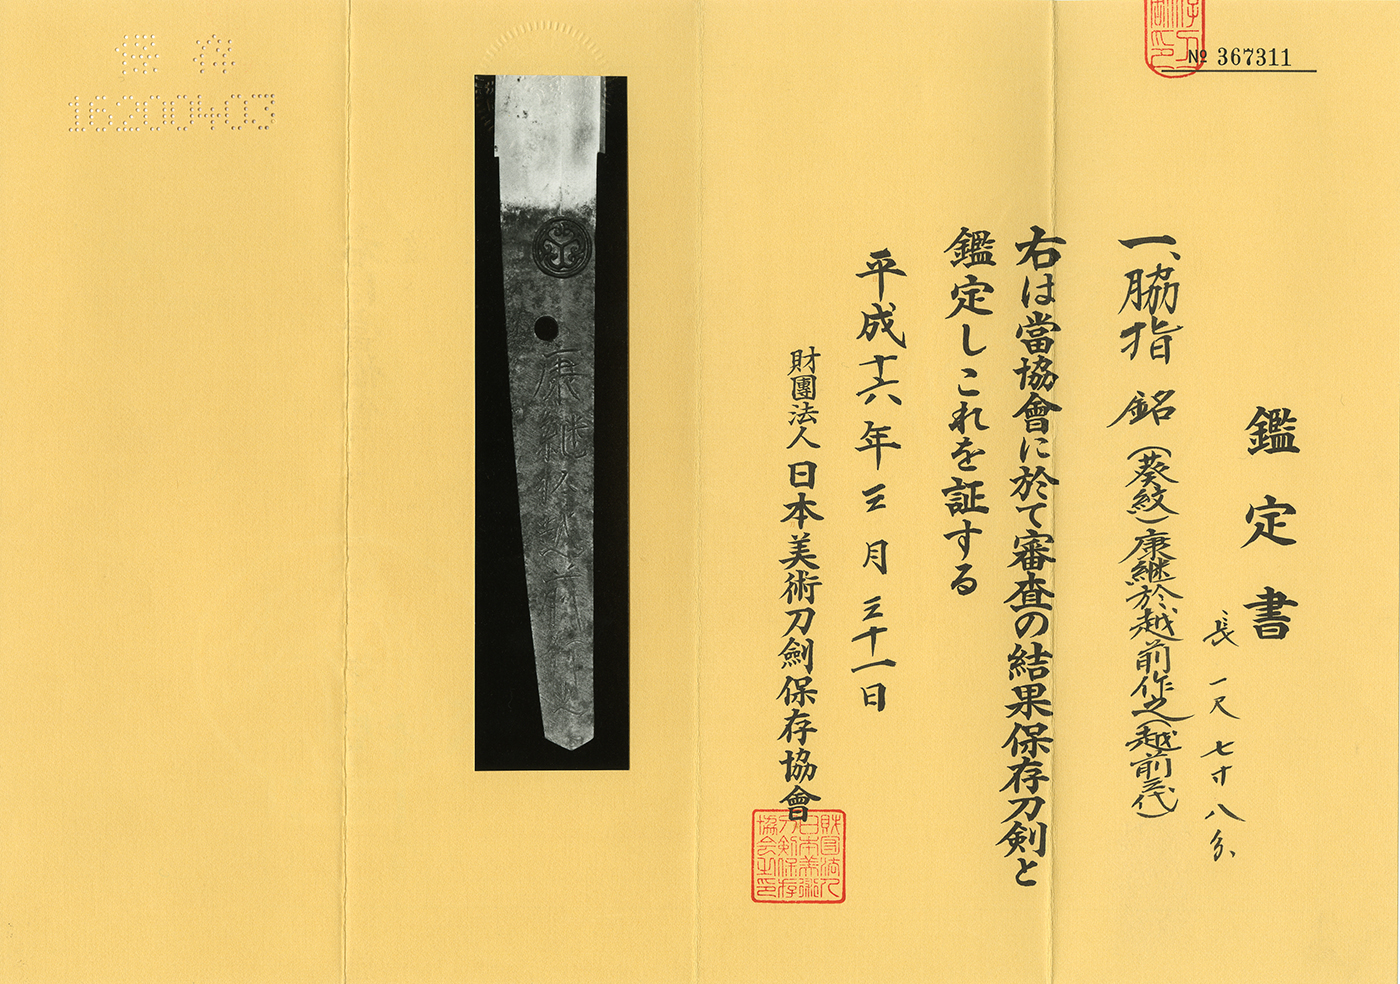 № 367311
鑑定書
一、脇指 銘(葵紋)康継於越前作之(越前三代)
長 一尺七寸八分
右は當協會に於て審査の結果保存刀剣と
鑑定しこれを証する
平成十六年三月三十一日
財團法人日本美術刀劍保存協會
財団法人日本美術刀剣保存協会之印
康継於越前作之
保存
16200403